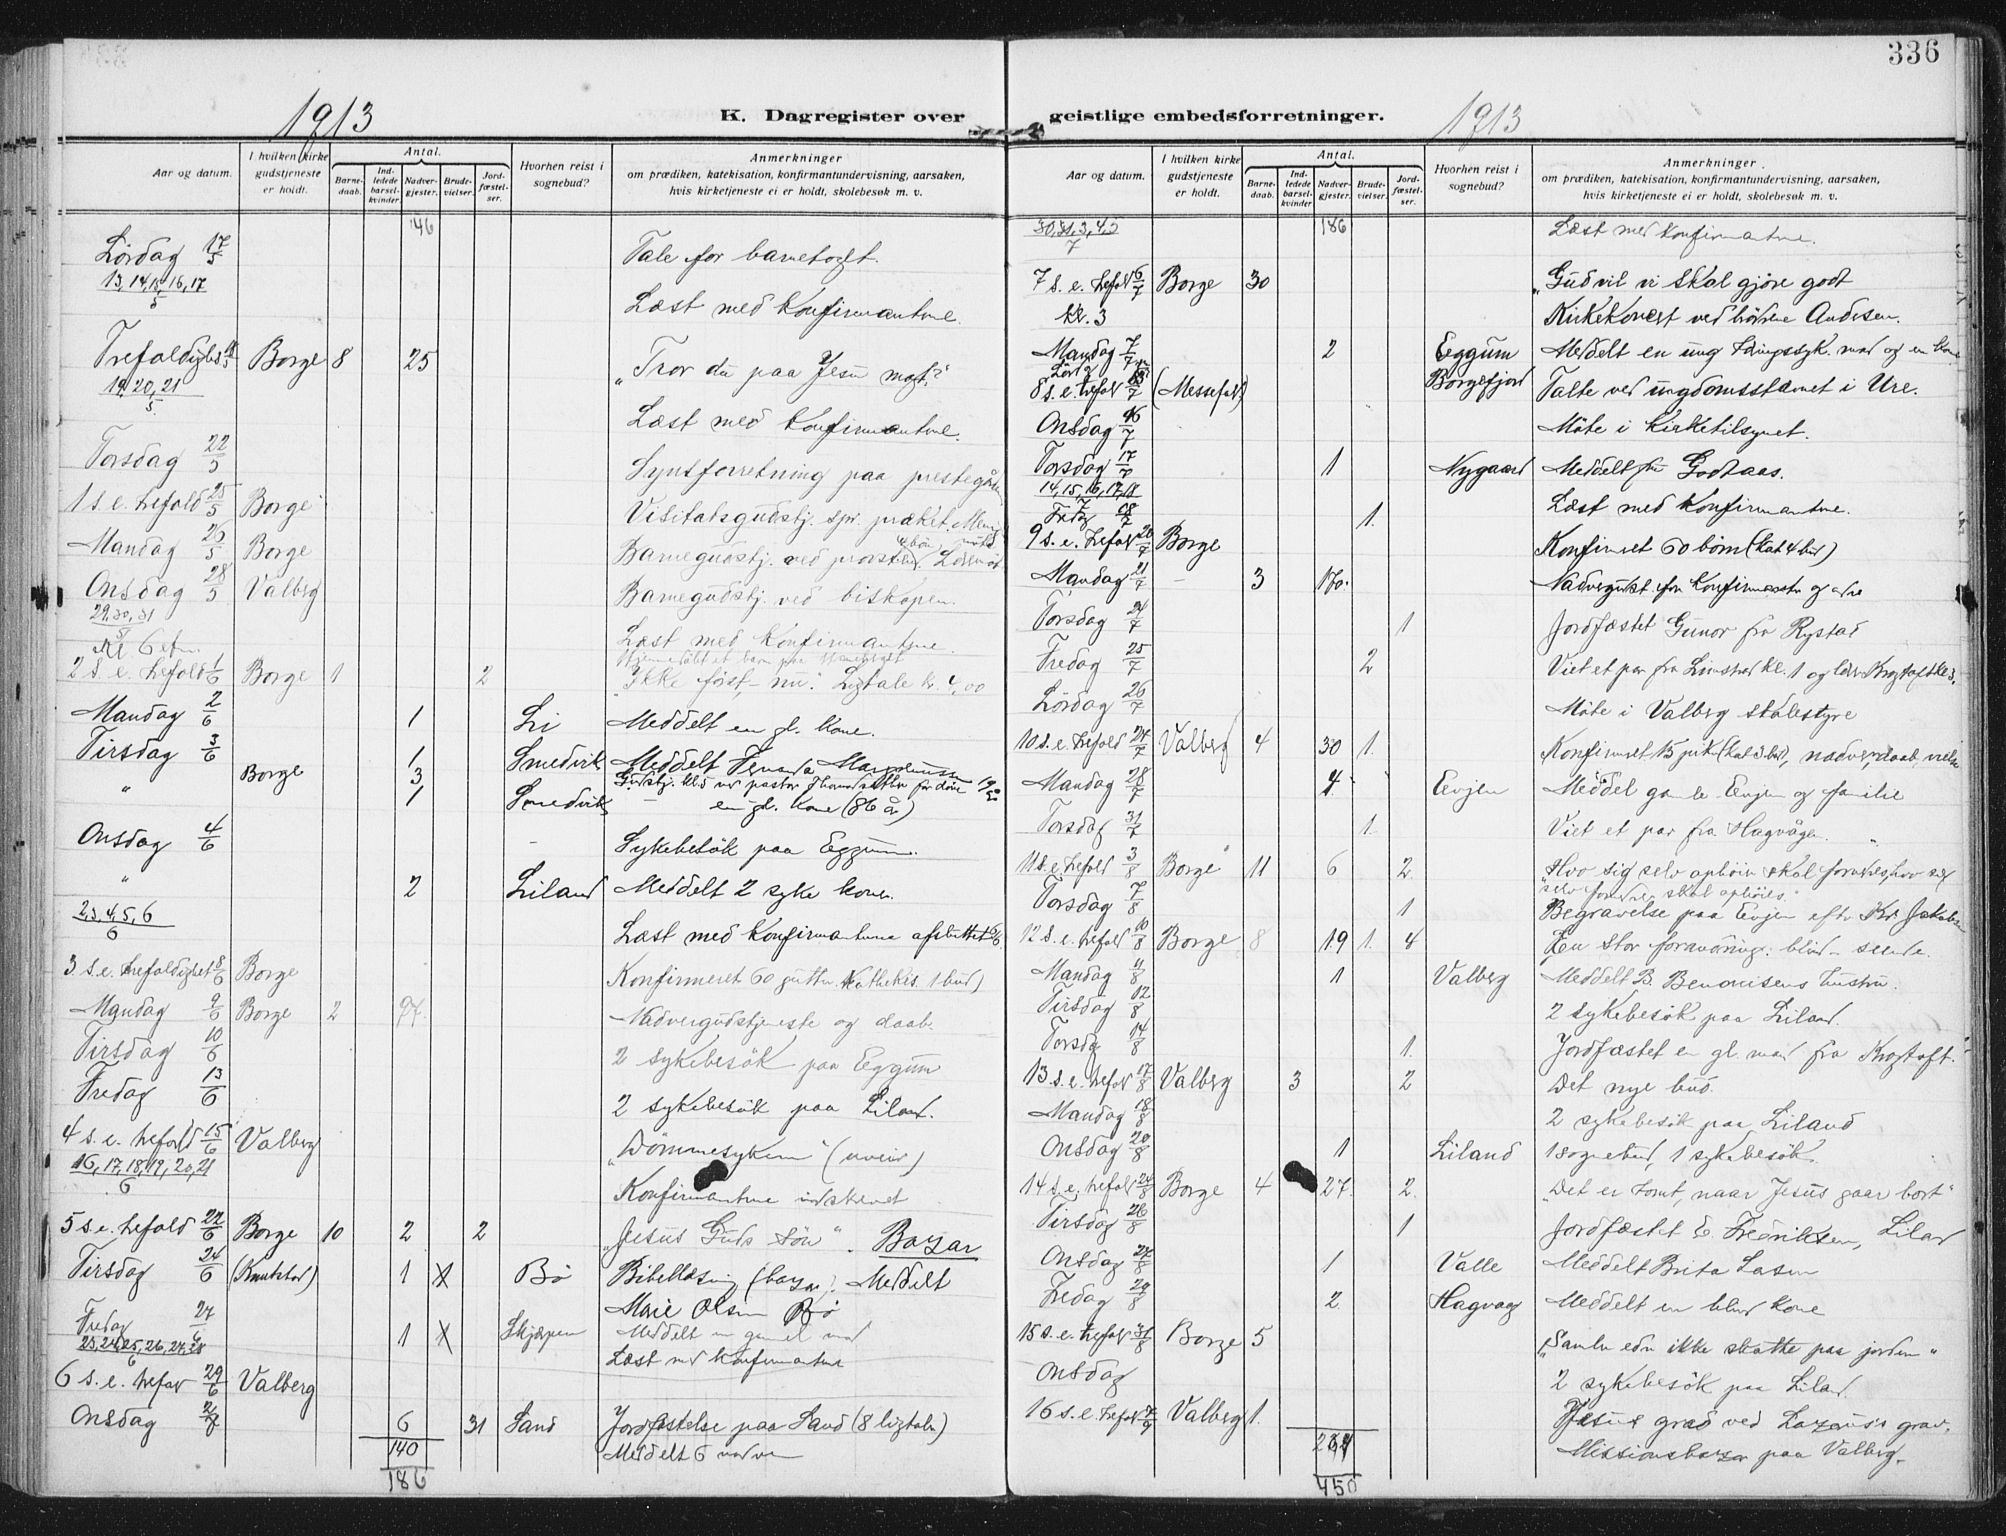 336
1913
K. Dagregister over
geistlige embedsforretninger.
1913
Aar og datum.
I hvilken kirke gudstjeneste er holdt.
Antal.
Barnedaab.
Indledede barselkvinder.
Nadvergjester.
Brudevielser.
Jordfæstelser.
Hvorhen reist i sognebud?
Anmerkninger
om prædiken, katekisation, konfirmantundervisning, aarsaken,
hvis kirketjeneste ei er holdt, skolebesøk m. v.
46
Lördag 17/5 Tale for barnetoget.
13, 14, 15, 16, 17/5 Læst med konfirmantene.
Trefoldighed 18/5 Borge 8 25 "Tror du paa Jesu
19, 20, 21/5 Læst med konfirmantene.
Torsdag 22/5 Synsforretning paa prestegården
1 s. e. trefold 25/5 Borge Visitatsgudstj.
Mandag 26/5 Borge Barnegudstj. ved
Onsdag 28/5 Valberg Barnegudstj. ved biskopen.
29, 30, 31/5 Læst med konfirmantene.
Kl 6 efm.
2 s. e. trefold 1/6 Borge 1 2 "Ikke först, nu". Ligtale kr. 4,00
Mandag 2/6 1 Li Meddelt en gl. kone.
Tirsdag 3/6 1 Smedvik Meddelt
" Borge 3
1 Smedvik — en gl. kone (86 år)
Onsdag 4/6 Sykebesök paa Eggum.
" 2 Liland Meddelt 2 syke koner.
2, 3, 4, 5, 6/6 Læst med konfirmantene afsluttet 6/6
3. s. e. trefoldighet 8/6 Borge Konfirmeret 60 gutter. Kathekis. 1 bud)
Mandag 9/6 Borge 2 97 Nadvergudstjeneste og daab.
Tirsdag 10/6 2 sykebesök paa Eggum
Fredag 13/6 2 sykebesök paa Liland.
4 s. e. trefold 15/6 Valberg "Dömmesyken" (uveir)
16, 17, 18, 19, 20, 21/6 Konfirmantene indskrevet
5 s. e. trefold 22/6 Borge 10 2 2 "Jesus Guds sön". Bazar
Tirsdag 24/6 (Knutstad) 1 X Bö Bibellæsning (bazar). Meddelt
Marie Olsen Bö
Fredag 27/6 1 X Skjærpen Meddelt en gammel mand
23, 24, 25, 26, 27, 28/6 Læst med konfirmantene
6 s. e. trefar 29/6 Valberg
Onsdag 2/7 6 31 Sand Jordfæstelse paa Sand (8 ligtaler)
140 Meddelt 6 nadver
186
Aar og datum.
I hvilken kirke gudstjeneste er holdt.
Antal.
Barnedaab.
Indledede barselkvinder
Nadvergjester.
Brudevielser.
Jordfæstelser.
Hvorhen reist i sognebud?
Anmerkninger.
om prædiken, katekisation, konfirmantundervisning, aarsaken,
hvis kirketjeneste ei er holdt, skolebesøk m. v.
186 Læst med konfirmantene.
7 s. e. trefold 6/7 Borge 30 "Gud vil vi skal gjöre godt
kl. 3 Kirkekoncert ved brödrene Andersen.
Mandag 7/7 2 Eggum Meddelt en ung
8 s. e. trefold 13/7 (Messefald) Borgefjord Talte ved ungdomsstevnet i Ure.
Onsdag 16/7 Möte i kirketilsynet.
Torsdag 17/7 1 Nygaard Meddelt fru Godtaas.
14, 15, 16, 17, 18/7 Læst med konfirmantene.
Fredag 18/7 1.
9 s. e. trefold 20/7 Borge Konfirmeret 60 börn (kat 4 bud)
Mandag 21/7 — 3 170. Nadvergudst. for konfirmanter og andre
Torsdag 24/7 1 Jordfæstet Gunor fra Rystad
Fredag 25/7 2 Viet et par fra Limstrand kl. 1 og
Lördag 26/7 Möte i Valberg skolestyre
10 s. e. trefold 27/7 Valberg 4 30 1. Konfirmeret 15 piker (kat 3. bud), nadver, daab, vielse
Mandag 28/7 4 Evjen Meddel gamle Evjen og familie
Torsdag 31/7 1. Viet et par fra Hagvågen.
11 s. e. trefold 3/8 Borge 11 6 2. "Hvo sig selv ophöier skal fornedres, hvo sig
selv fornedrer skal ophöies."
Torsdag 7/8 1 Begravelse paa Evjen efter Kr. Jakobsen
12 s. e. trefold 10/8 Borge 8 19 1. 4 En stor forandring: blind – seende.
Mandag 11/8 1 Valberg Meddelt B. Benonisens hustru.
Tirsdag 12/8 2 sykebesök paa Liland.
Torsdag 14/8 1. Jordfæstet en gl. mand fra Krogtoft.
13 s. e. trefold 17/8 Valberg 3 2 Det nye bud.
Mandag 18/8 2 sykebesök paa Liland
Onsdag 20/8 1 Liland 1 sognebud, 1 sykebesök.
14 s. e. trefold 24/8 Borge 4 27. 2. "Det er tomt, naar Jesus gaar bort"
Tirsdag 26/8 1 Jordfæstet E. Fredriksen, Liland
Onsdag 27/8 1 Valle Meddelt Brita Lasen
Fredag 29/8 2 Hagvåg Meddelt en blind kone
15 s. e. trefold 31/8 Borge 5 "Samler eder ikke skatte paa jorden"
Onsdag 2 sykebesök paa Liland.
16 s. e. trefold 7/9 Valberg 1. Jesus graad ved Lazarus's grav.
264 Missionsbazar paa Valberg.
450